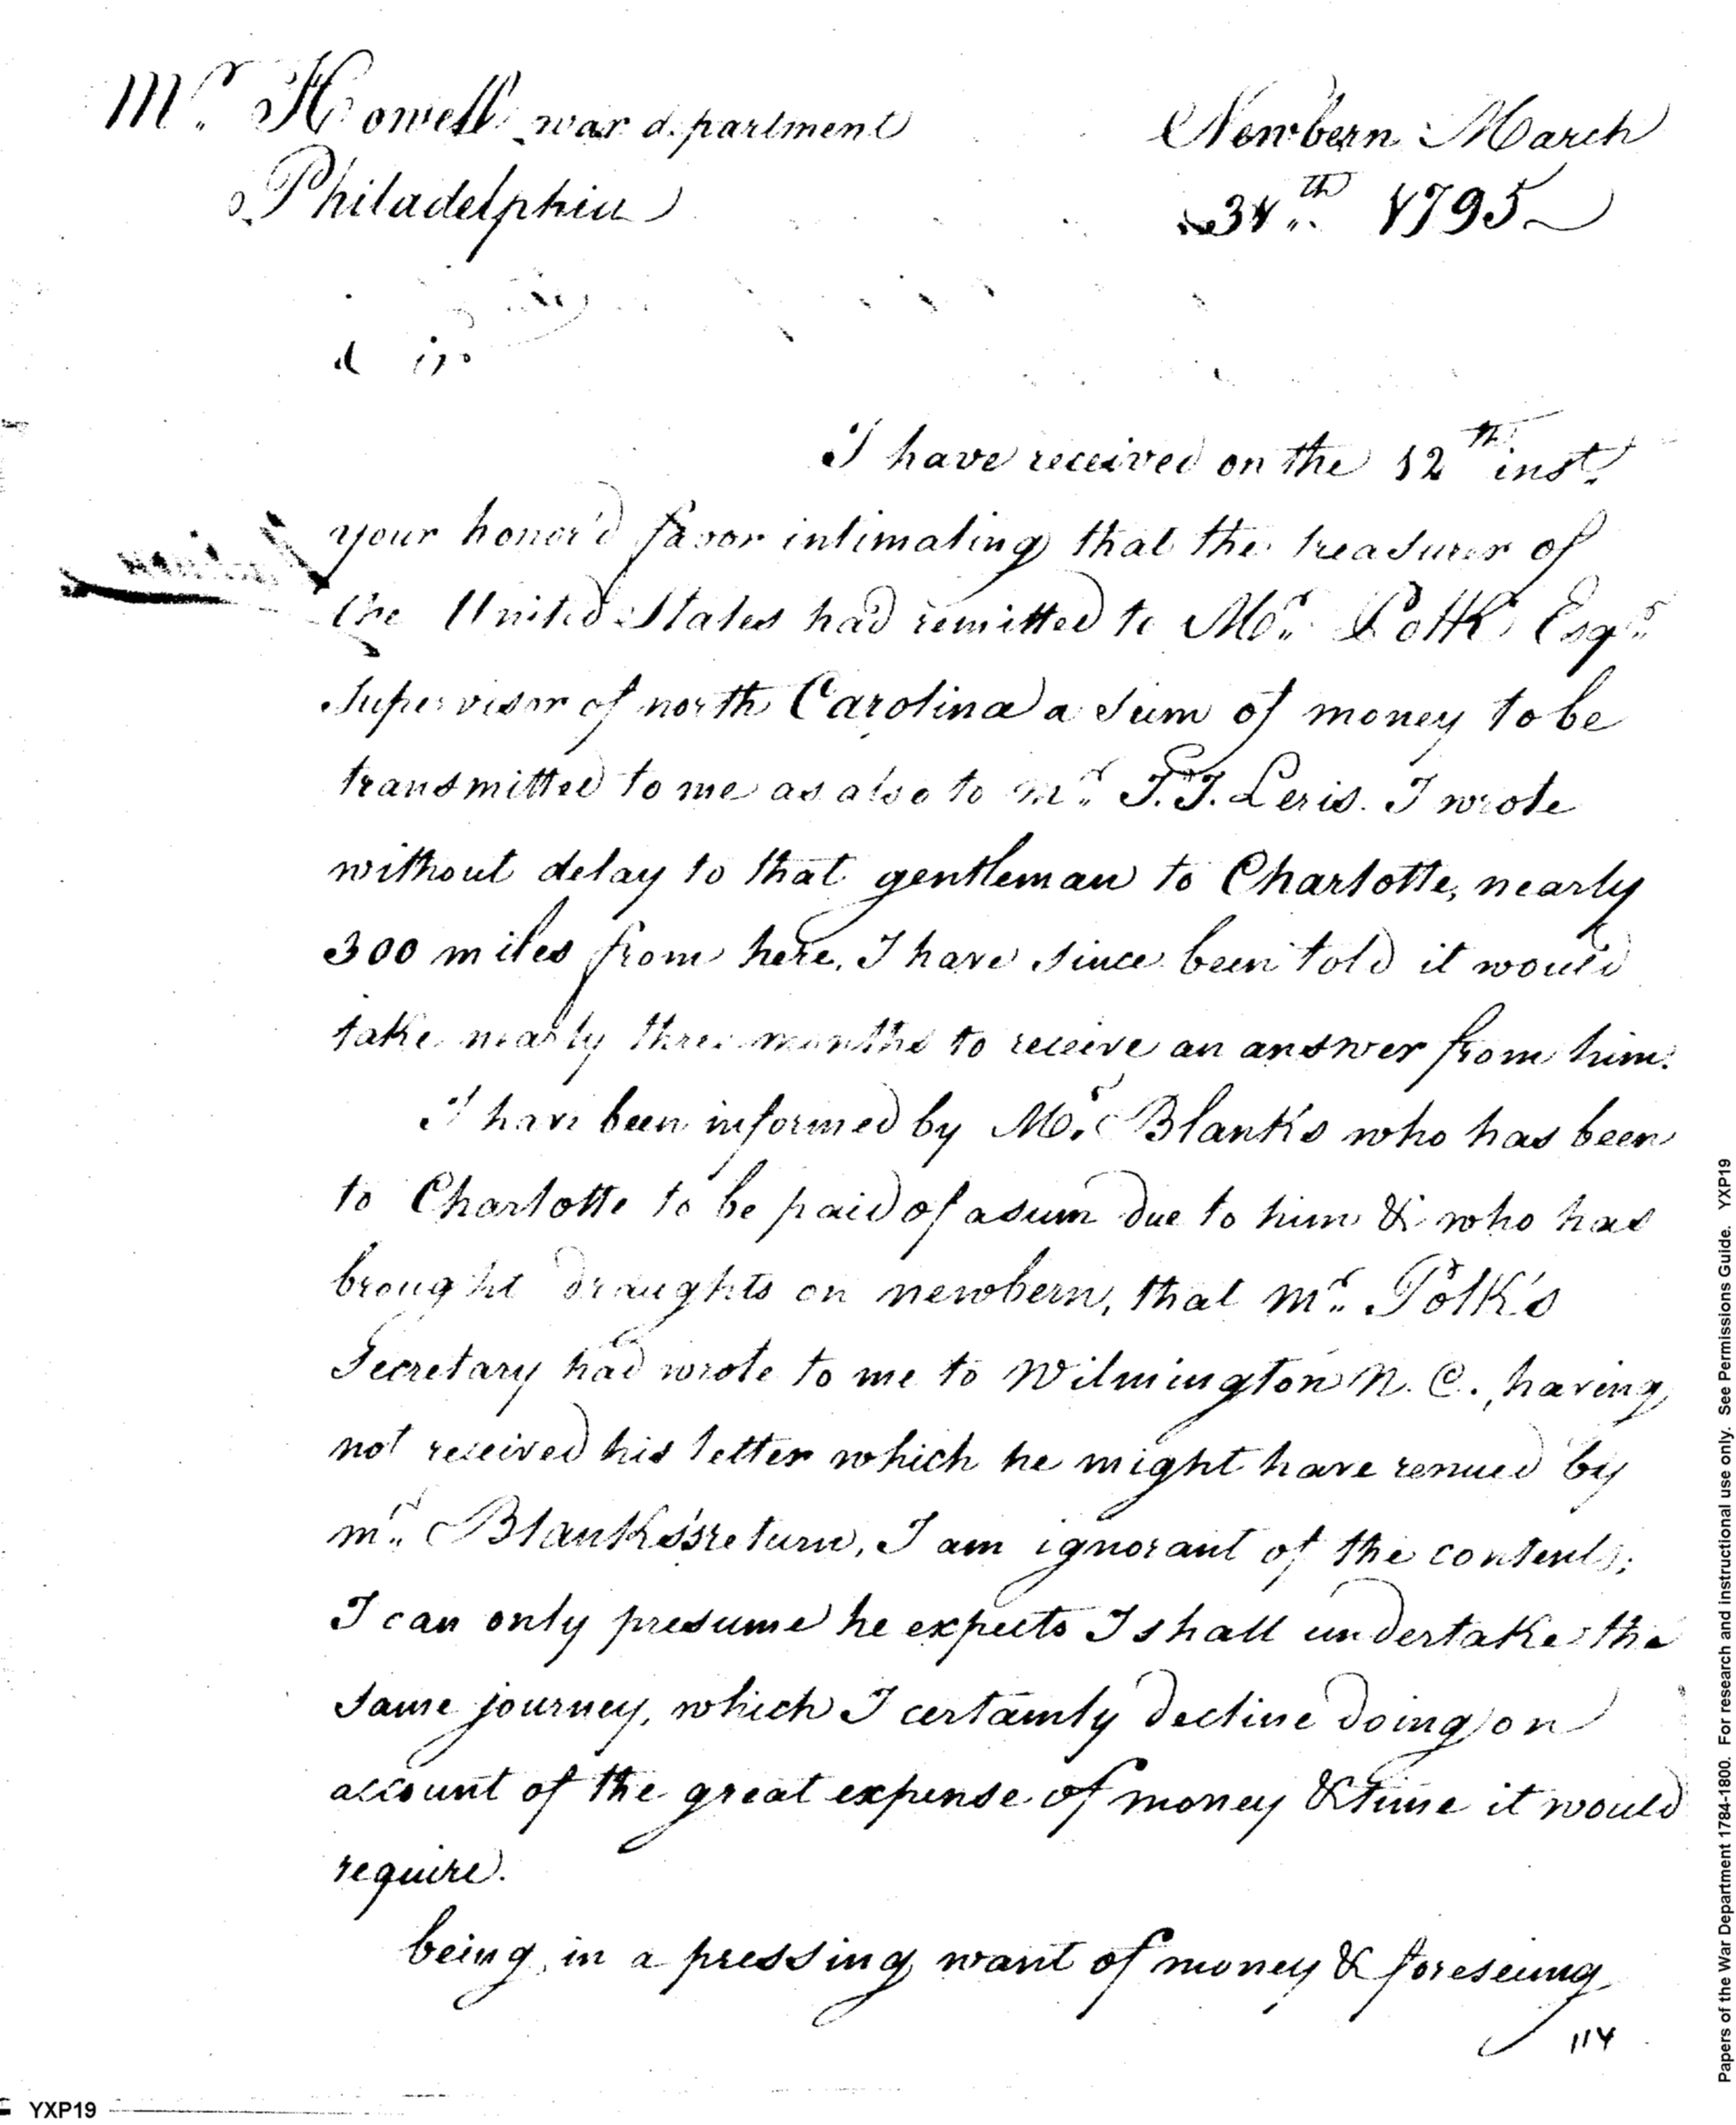 Mr. Howell war department
Philadelphia
Newbern March
31th 1795
Sir
I have received on the 12th inst.
your honor'd favor intimating that the treasurer of
the United States had remitted to Mr. Polk Esqr.
Supervisor of north Carolina a sum of money to be
transmitted to me as also to mr. J.J. Leris. I wrote
without delay to that gentleman to Charlotte, nearly
300 miles from here. I have since been told it would
take nearly three months to receive an answer from him.
I have been informed by Mr. Blanks who has been
to Charlotte to be paid of a sum due to him & who has
brought draughts on newbern, that mr. Polk's
Secretary had wrote to me to Wilmington N. C., having
not received his letter which he might have renued by
mr. Blanks's return, I am ignorant of the contents;
I can only presume he expects I shall undertake the
same journey, which I certainly decline doing on
account of the great expense of money & time it would
require.
being in a pressing want of money & foreseeing
114
YXP19
Papers of the War Department 1784-1800. For research and instructional use only. See Permissions Guide. YXP19